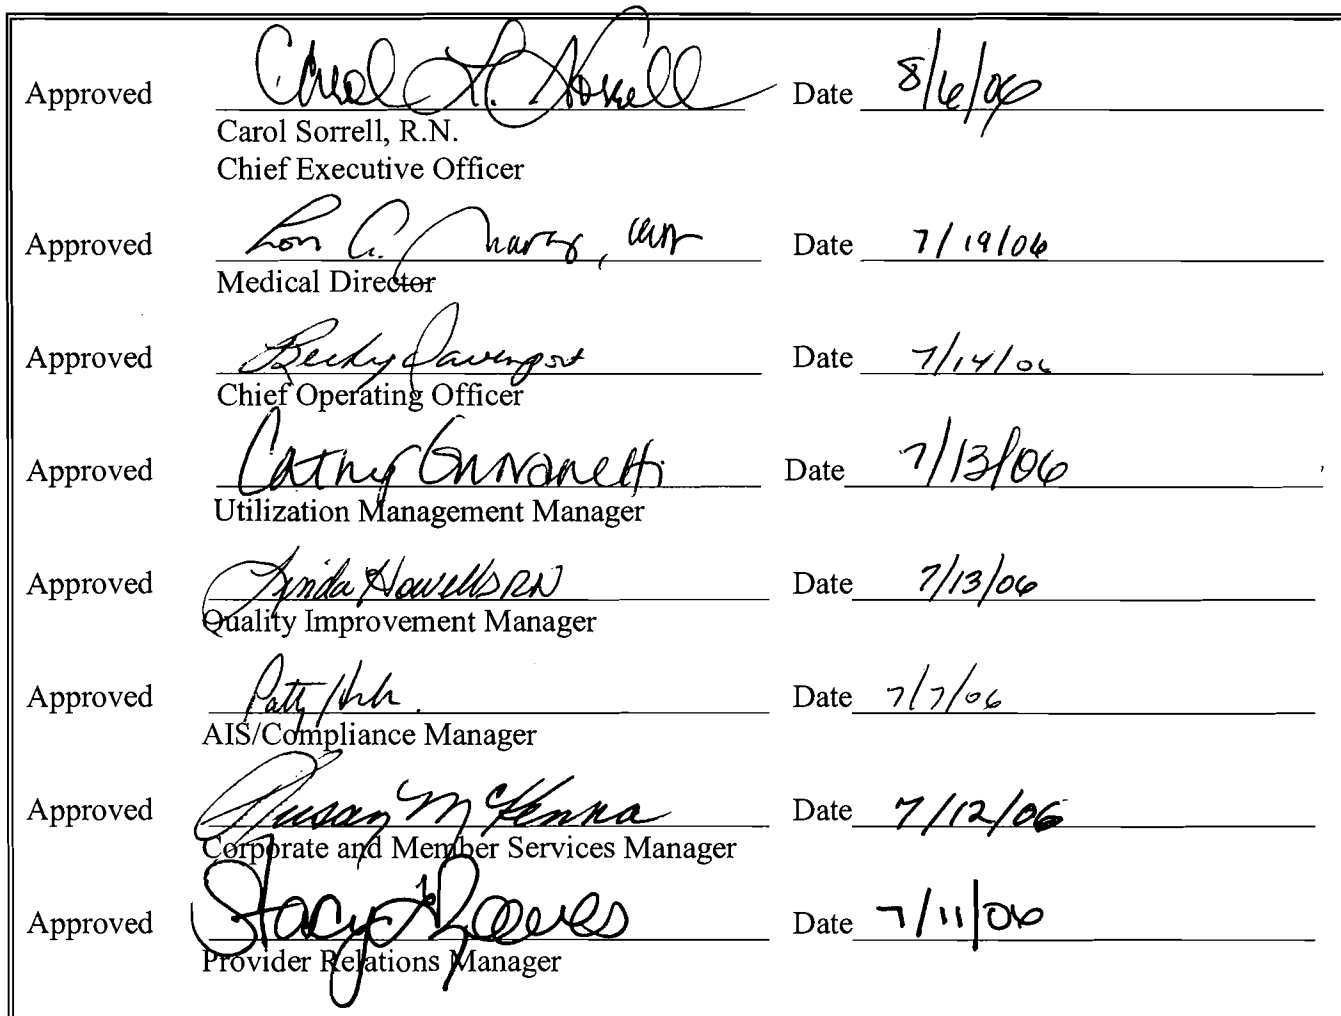 Approved Carol L. Sorrell Date 8/6/06
Carol Sorrell, R.N.
Chief Executive Officer
Approved Date 7/19/06
Medical Director
Approved Becky Davenport Date 7/14/06
Chief Operating Officer
Approved Cathy Date 7/13/06
Utilization Management Manager
Approved Linda Howells RN Date 7/13/06
Quality Improvement Manager
Approved Patty Date 7/7/06
AIS/Compliance Manager
Approved Susan McKenna Date 7/12/06
Corporate and Member Services Manager
Approved Stacy Reeves Date 7/11/06
Provider Relations Manager